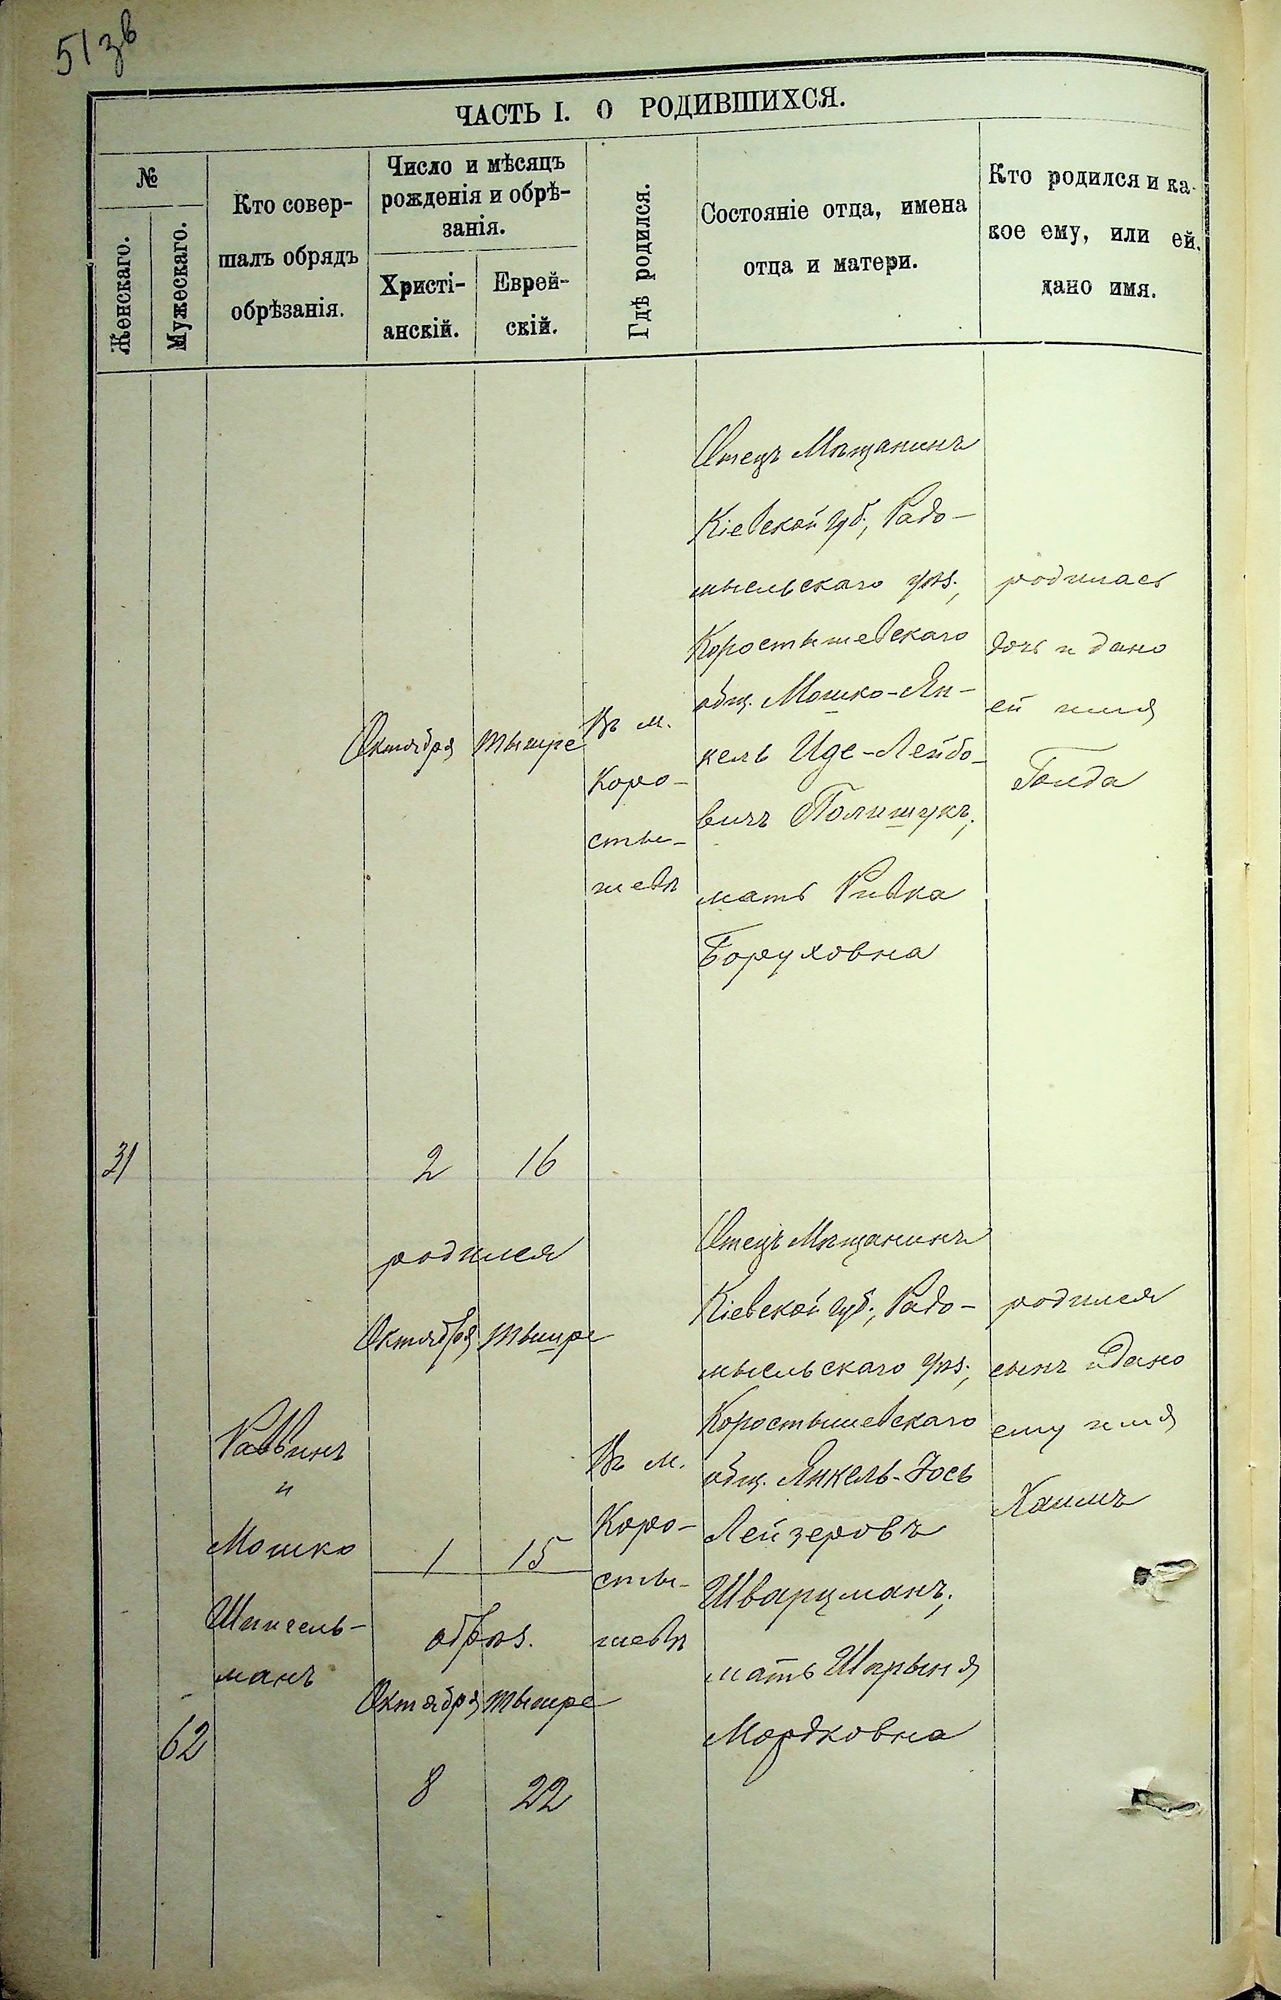 51 зв
ЧАСТЬ I. О РОДИВШИХСЯ.
№
Женскаго.
Мужескаго.
Кто совер-
шалъ обрядъ
обрѣзанія.
Число и мѣсяцъ
рожденія и обрѣ-
занія.
Христі-
анскій.
Еврей-
скій.
Гдѣ родился.
Состояніе отца, имена
отца и матери.
Кто родился и ка-
кое ему, или ей,
дано имя.
31
Октября
2
Тышре
16
Въ м.
Коро-
сты-
шевѣ
Отецъ Мѣщанинъ
Кіевской губ., Радо-
мысльскаго уѣз.,
Коростышевскаго
общ. Мошко-Ян-
кель Иде-Лейбо-
вичъ Полишукъ,
мать Ривка
Боруховна
родилась
дочь и дано
ей имя
Голда
62
Раввинъ
и
Мошко
Шпигель-
манъ
родился
Октября Тышре
1 15
обрѣз.
Октября Тышре
8 22
Въ м.
Коро-
сты-
шевѣ
Отецъ Мѣщанинъ
Кіевской губ., Радо-
мысльскаго уѣз.,
Коростышевскаго
общ. Янкель-Іось
Лейзеровъ
Шварцманъ,
мать Шпрыня
Мордковна
родился
сынъ и дано
ему имя
Хаимъ